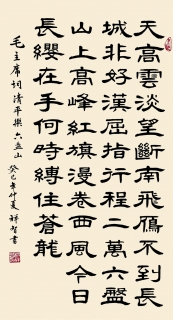 天高雲淡望斷南飛鴈不到長
城非好漢屈指行程二萬六盤
山上高峰紅旗漫卷西風今日
長纓在手何時縛住蒼龍
毛主席詞清平樂六盘山
癸巳年仲夏祥智書